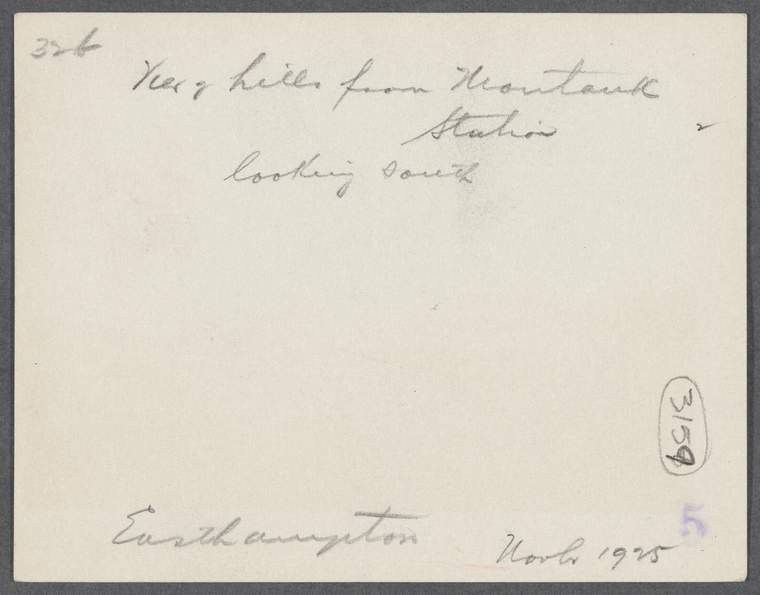 32b
View of hills from Montauk
Station
looking south
3159
5
Easthampton
Novbr 1925